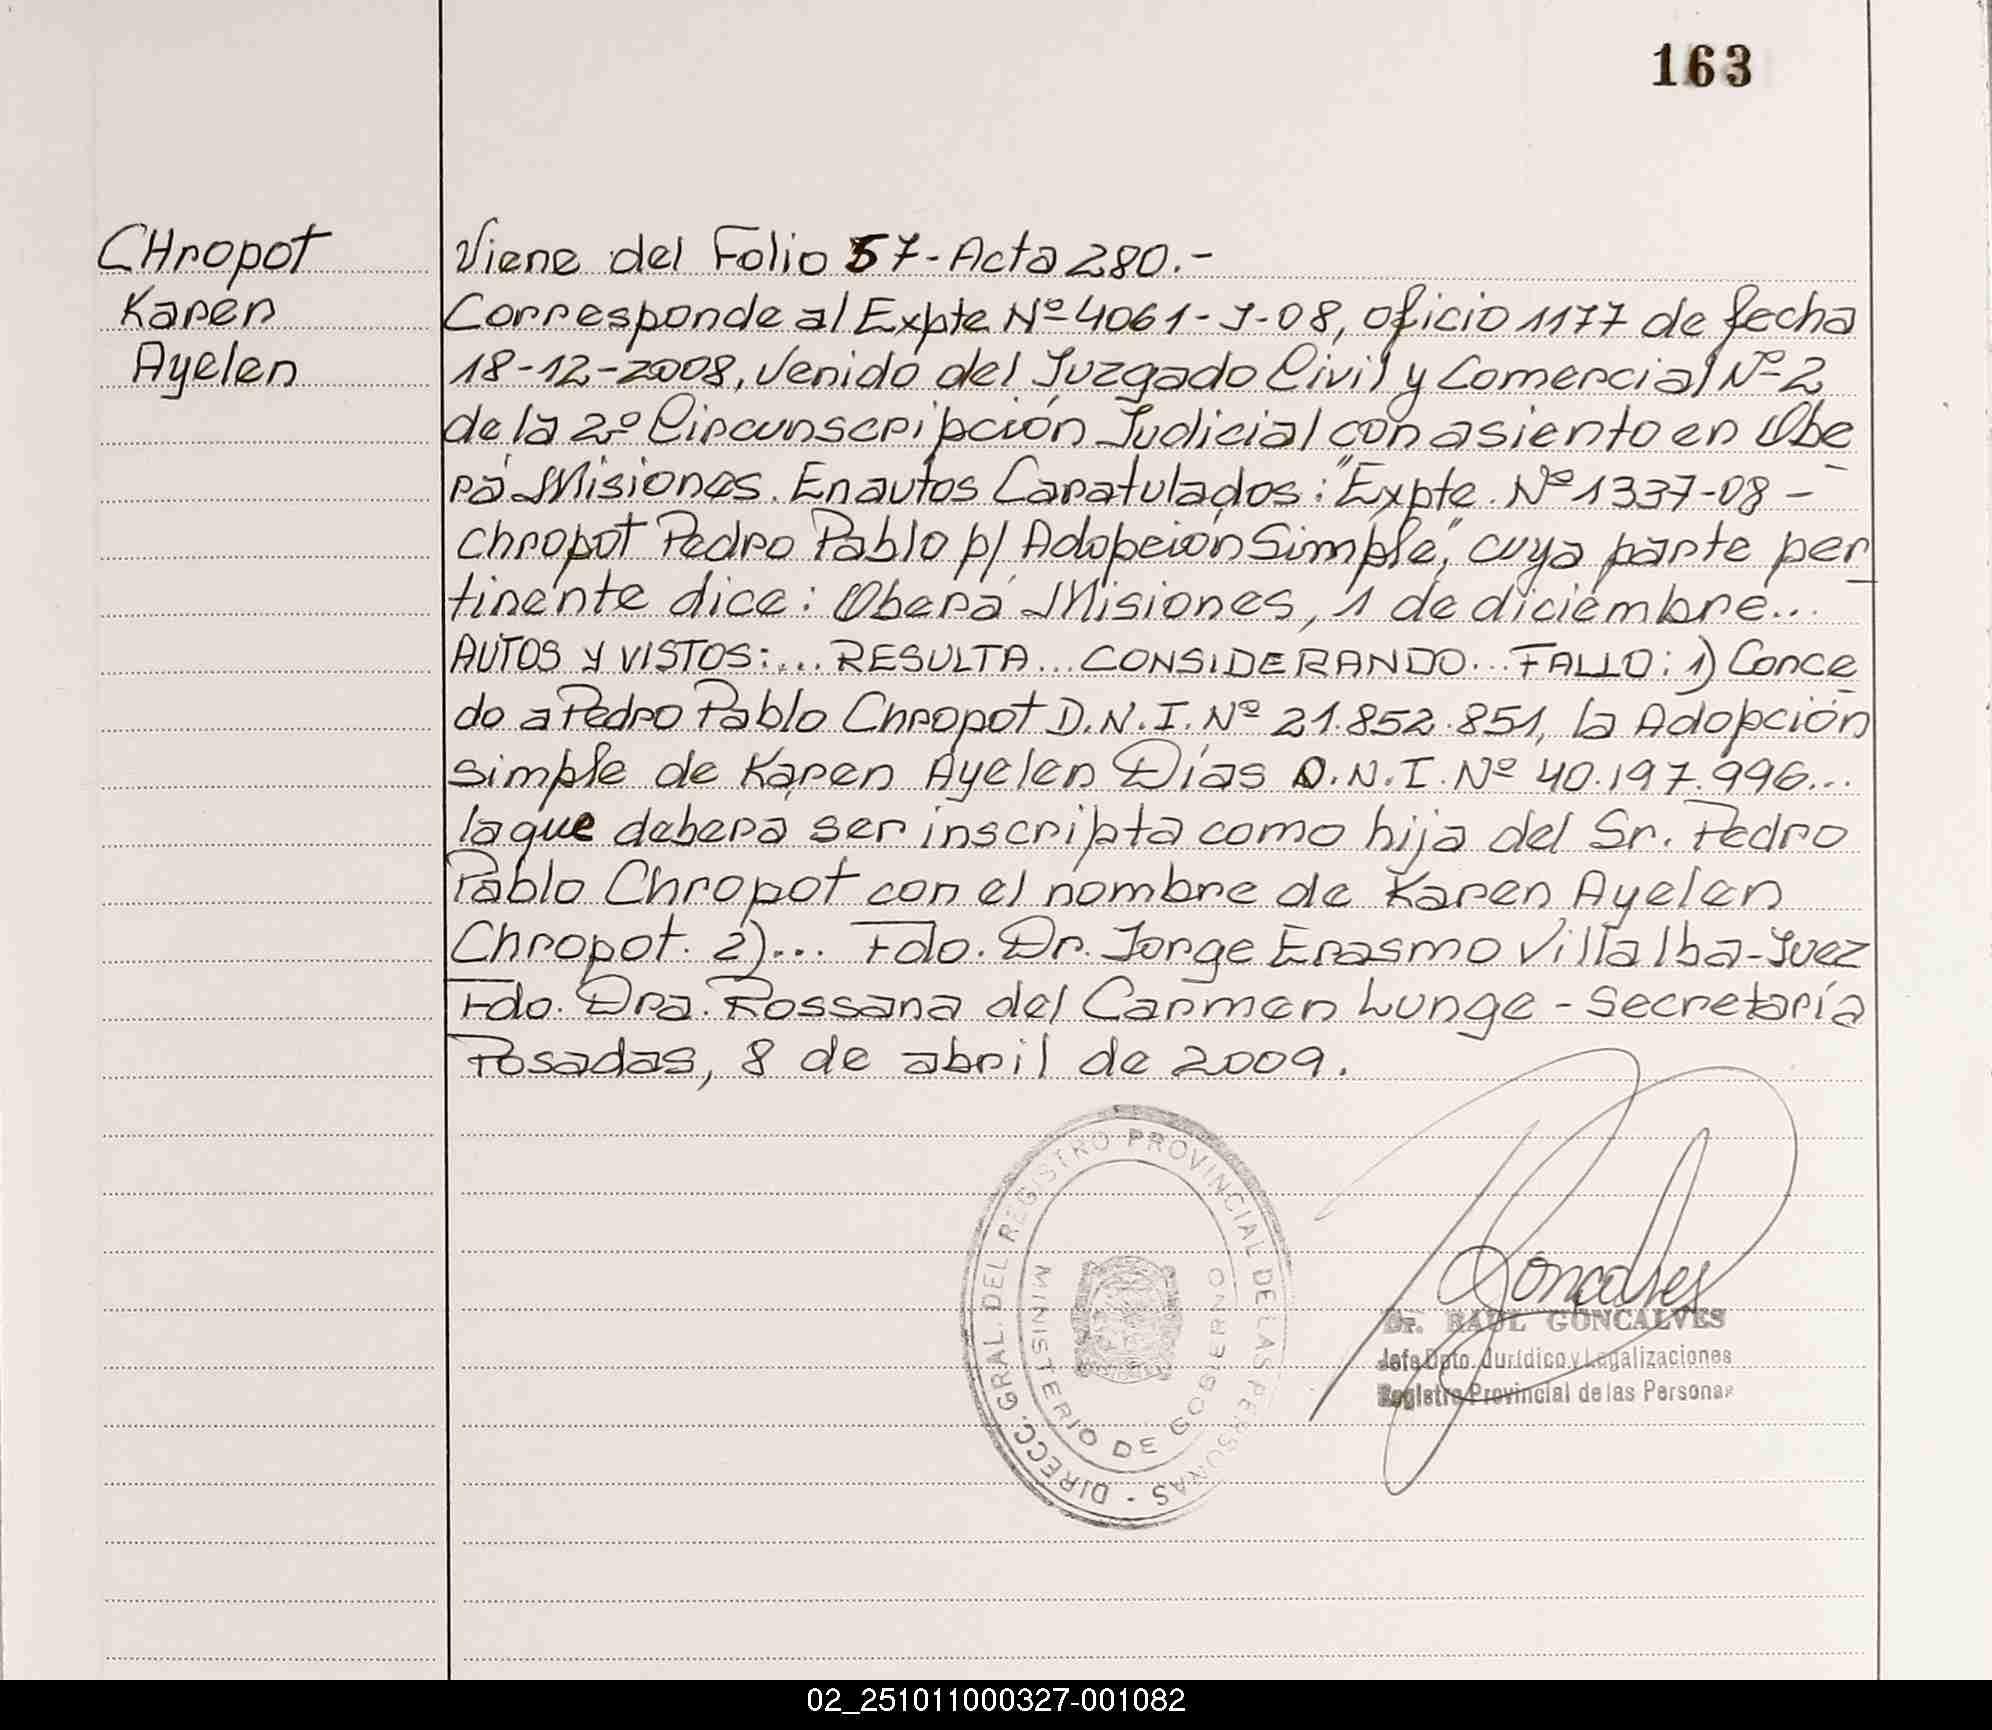 163
CHropot
Karen
Ayelen
Viene del Folio 57-Acta 280.-
Corresponde al Expte Nº 4061-J-08, oficio 1177 de fecha
18-12-2008, venido del Juzgado Civil y Comercial Nº 2
de la 2º Circunscripción Judicial con asiento en Obe
rá Misiones. En autos Caratulados: "Expte. Nº 1337-08 -
Chropot Pedro Pablo p/ Adopción Simple", cuya parte per
tinente dice: Oberá Misiones, 1 de diciembre...
AUTOS Y VISTOS:.... RESULTA... CONSIDERANDO... FALLO: 1) Conce
do a Pedro Pablo Chropot D.N.I. Nº 21.852.851, la Adopción
simple de Karen Ayelen Días D.N.I. Nº 40.197.996...
la que debera ser inscripta como hija del Sr. Pedro
Pablo Chropot con el nombre de Karen Ayelen
Chropot. 2)... Fdo. Dr. Jorge Erasmo Villalba-Juez
Fdo. Dra. Rossana del Carmen Lunge - Secretaría
Posadas, 8 de abril de 2009.
DIRECC. GRAL. DEL REGISTRO PROVINCIAL DE LAS PERSONAS -
MINISTERIO DE GOBIERNO
Goncalves
Dr. RAUL GONCALVES
Jefe Dpto. Jurídico y Legalizaciones
Registro Provincial de las Personas
02_251011000327-001082